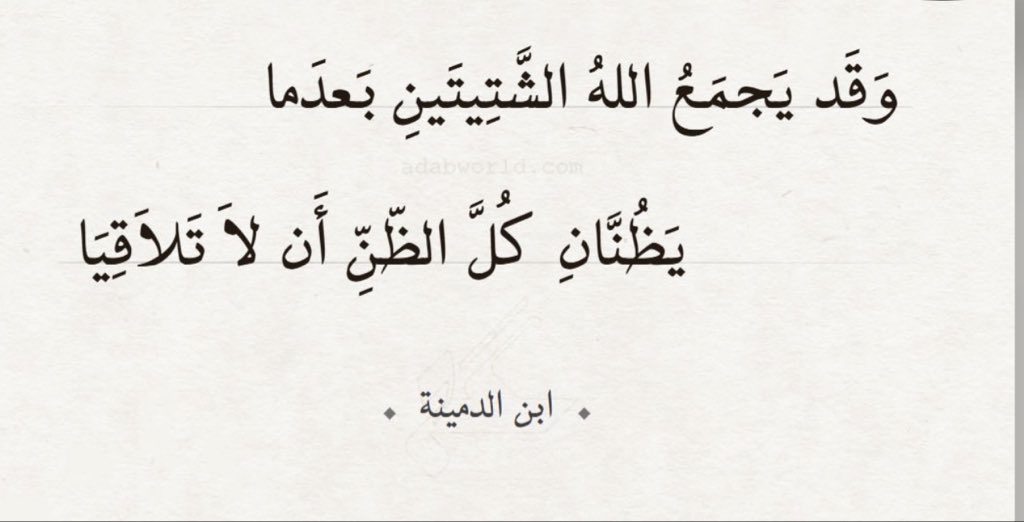 وَقَد يَجمَعُ اللهُ الشَّتِيتَينِ بَعدَما
adabworld.com
يَظُنَّانِ كُلَّ الظّنِّ أَن لاَ تَلاَقِيَا
ابن الدمينة